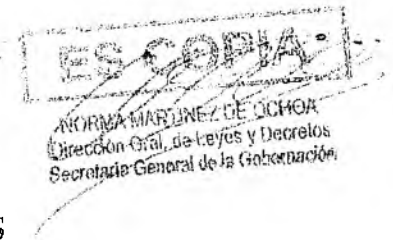 ES COPIA
NORMA MARTINEZ DE OCHOA
Dirección Gral. de Leyes y Decretos
Secretaría General de la Gobernación
5